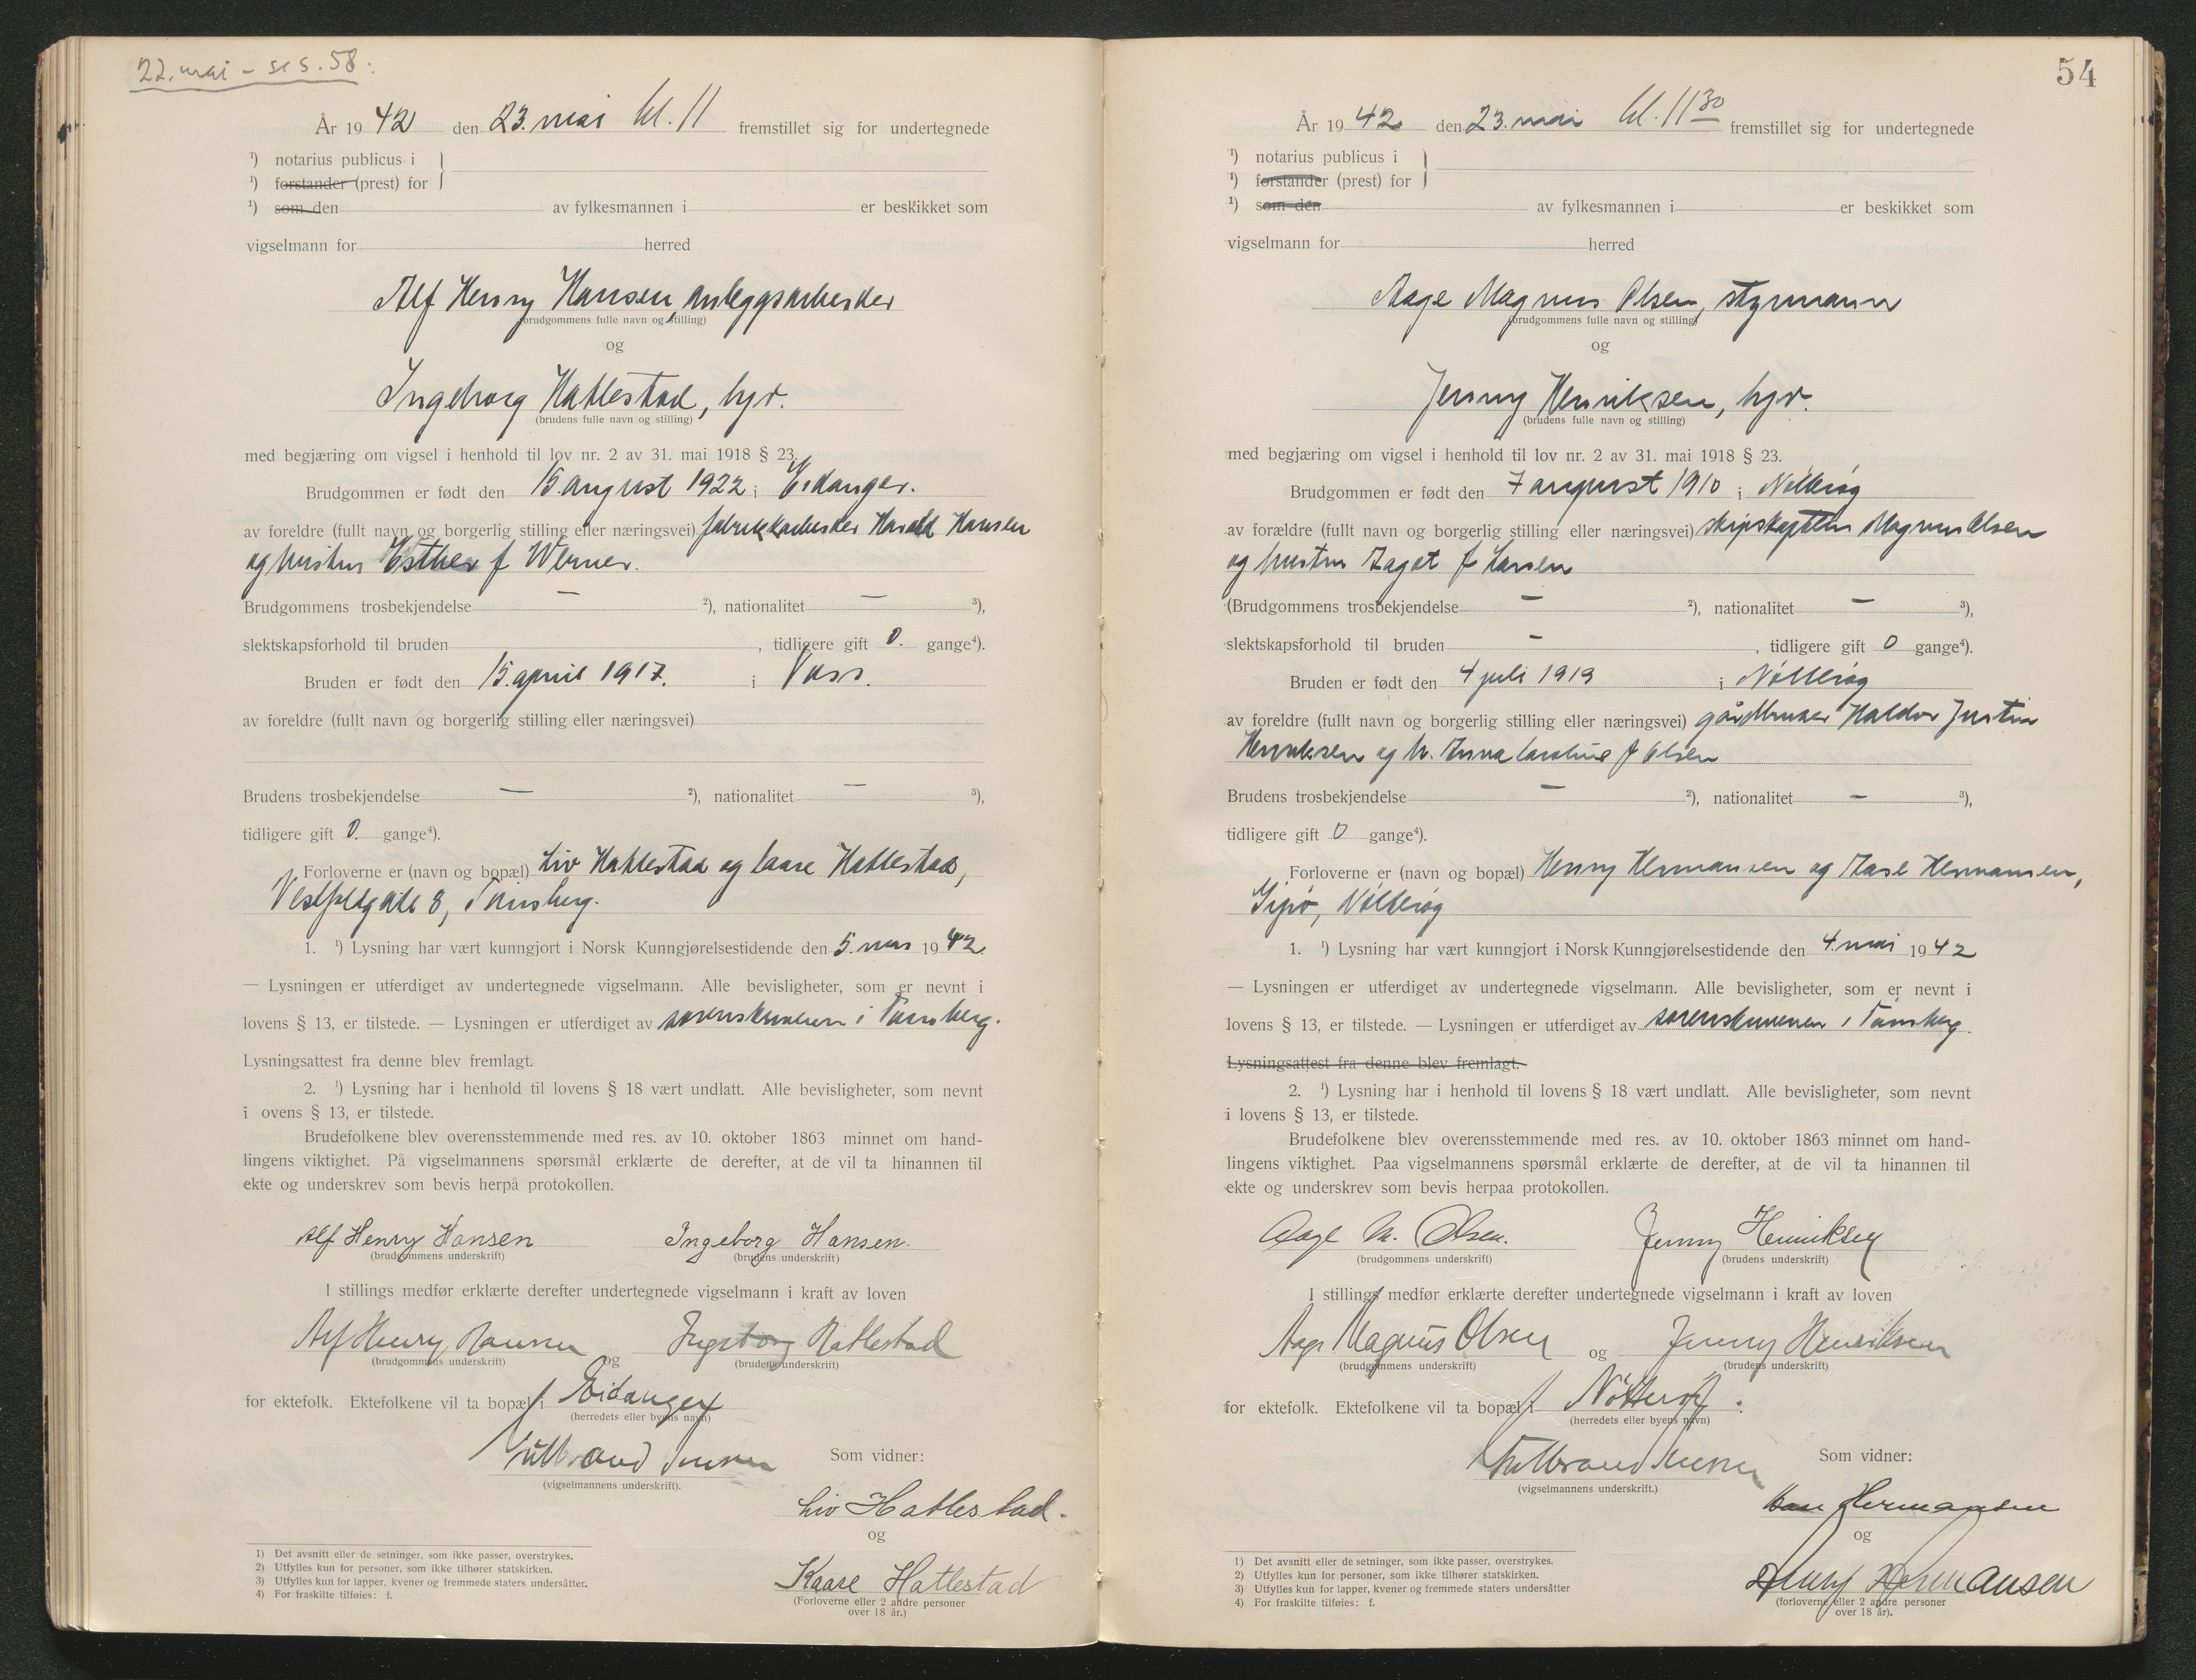 22. mai - se s. 58.
År 1942 den 23. mai kl. 11 fremstillet sig for undertegnede
¹) notarius publicus i
¹) forstander (prest) for
¹) som den av fylkesmannen i er beskikket som
vigselmann for herred
Alf Henry Hansen, anleggsarbeider
(brudgommens fulle navn og stilling)
og
Ingeborg Hatlestad, hgr.
(brudens fulle navn og stilling)
med begjæring om vigsel i henhold til lov nr. 2 av 31. mai 1918 § 23.
Brudgommen er født den 15. august 1922 i Eidanger.
av foreldre (fullt navn og borgerlig stilling eller næringsvei) fabrikkarbeider Harald Hansen
og hustru Esther f Werner.
Brudgommens trosbekjendelse — ²), nationalitet — ³),
slektskapsforhold til bruden , tidligere gift 0. gange⁴).
Bruden er født den 15. april 1917. i Voss.
av foreldre (fullt navn og borgerlig stilling eller næringsvei)
Brudens trosbekjendelse — ²), nationalitet — ³),
tidligere gift 0. gange⁴).
Forloverne er (navn og bopæl) Liv Hatlestad og Kaare Hatlestad,
Vestfoldgate 8, Tønsberg.
1. ¹) Lysning har vært kunngjort i Norsk Kunngjørelsestidende den 5. mai 1942.
— Lysningen er utferdiget av undertegnede vigselmann. Alle bevisligheter, som er nevnt i
lovens § 13, er tilstede. — Lysningen er utferdiget av sorenskriveren i Tønsberg.
Lysningsattest fra denne blev fremlagt.
2. ¹) Lysning har i henhold til lovens § 18 vært undlatt. Alle bevisligheter, som nevnt
i ovens § 13, er tilstede.
Brudefolkene blev overensstemmende med res. av 10. oktober 1863 minnet om hand-
lingens viktighet. På vigselmannens spørsmål erklærte de derefter, at de vil ta hinannen til
ekte og underskrev som bevis herpå protokollen.
Alf Henry Hansen Ingeborg Hansen.
(brudgommens underskrift) (brudens underskrift)
I stillings medfør erklærte derefter undertegnede vigselmann i kraft av loven
Alf Henry Hansen og Ingeborg Hatlestad
(brudgommens underskrift) (brudens underskrift)
for ektefolk. Ektefolkene vil ta bopæl i Eidanger
(herredets eller byens navn)
Som vidner:
(vigselmannens underskrift).
Liv Hatlestad.
og
Kaare Hatlestad
(Forloverne eller 2 andre personer
over 18 år.)
1) Det avsnitt eller de setninger, som ikke passer, overstrykes.
2) Utfylles kun for personer, som ikke tilhører statskirken.
3) Utfylles kun for lapper, kvener og fremmede staters undersåtter.
4) For fraskilte tilføies: f.
54
År 1942 den 23. mai kl. 11³⁰ fremstillet sig for undertegnede
¹) notarius publicus i
¹) forstander (prest) for
¹) som den av fylkesmannen i er beskikket som
vigselmann for herred
Aage Magnus Olsen, styrmann
(brudgommens fulle navn og stilling)
og
Jenny Henriksen, hgr.
(brudens fulle navn og stilling)
med begjæring om vigsel i henhold til lov nr. 2 av 31. mai 1918 § 23.
Brudgommen er født den 7 august 1910 i Nøtterøy
av forældre (fullt navn og borgerlig stilling eller næringsvei) skipskaptein Magnus Olsen
og hustru Aagot f Larsen
(Brudgommens trosbekjendelse — ²), nationalitet — ³),
slektskapsforhold til bruden - , tidligere gift 0 gange⁴).
Bruden er født den 4 juli 1919 i Nøtterøy
av foreldre (fullt navn og borgerlig stilling eller næringsvei) gårdbruker Haldor Justin
Henriksen og h. Anna Caroline f Olsen
Brudens trosbekjendelse — ²), nationalitet — ³),
tidligere gift 0 gange⁴).
Forloverne er (navn og bopæl) Henry Hermansen og Aase Hermansen,
Gipø, Nøtterøy
1. ¹) Lysning har vært kunngjort i Norsk Kunngjørelsestidende den 4. mai 1942
— Lysningen er utferdiget av undertegnede vigselmann. Alle bevisligheter, som er nevnt i
lovens § 13, er tilstede. — Lysningen er utferdiget av sorenskriveren i Tønsberg.
Lysningsattest fra denne blev fremlagt.
2. ¹) Lysning har i henhold til lovens § 18 vært undlatt. Alle bevisligheter, som nevnt
i lovens § 13, er tilstede.
Brudefolkene blev overensstemmende med res. av 10. oktober 1863 minnet om hand-
lingens viktighet. Paa vigselmannens spørsmål erklærte de derefter, at de vil ta hinannen til
ekte og underskrev som bevis herpaa protokollen.
Aage M. Olsen. Jenny Henriksen
(brudgommens underskrift) (brudens underskrift)
I stillings medfør erklærte derefter undertegnede vigselmann i kraft av loven
Aage Magnus Olsen og Jenny Henriksen
(brudgommens underskrift) (brudens underskrift)
for ektefolk. Ektefolkene vil ta bopæl i Nøtterøy.
(herredets eller byens navn)
Som vidner:
(vigselmannens underskrift.)
Aase Hermansen
og
Henry Hermansen
(forloverne eller 2 andre personer
over 18 år).
1) Det avsnitt eller de setninger, som ikke passer, overstrykes.
2) Utfylles kun for personer, som ikke tilhører statskirken.
3) Utfylles kun for lapper, kvener og fremmede staters undersåtter
4) For fraskilte tilføies: f.